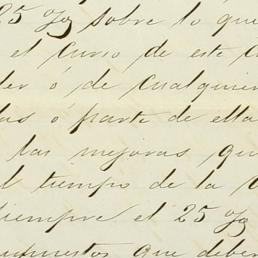 25 % sobre lo que
el curso de este
der ó de cualquier
las ó parte de ella
las mejoras que
l tiempo de la
siempre el 25 %
upuestos que deber